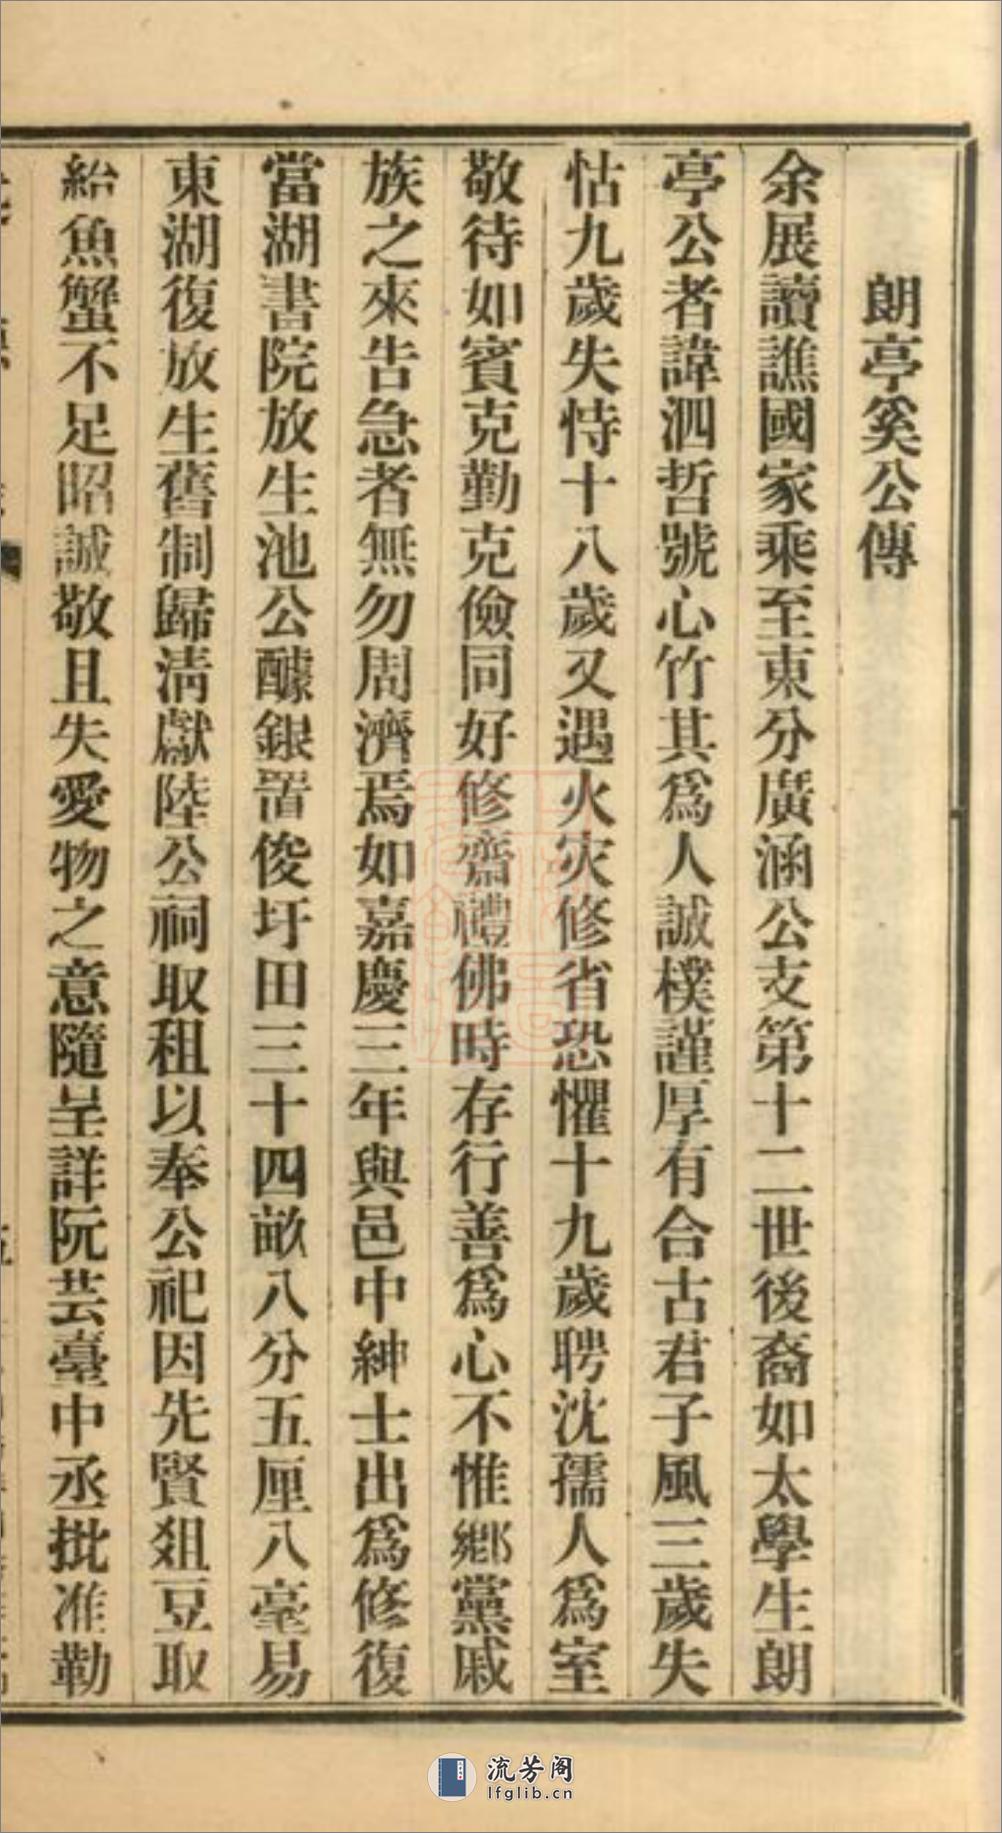 朗亭奚公傳
余展讀譙國家乘至東分廣涵公支第十二世後裔如太學生朗
亭公者諱泗哲號心竹其爲人誠樸謹厚有合古君子風三歲失
怙九歲失恃十八歲又遇火灾修省恐懼十九歲聘沈孺人爲室
敬待如賓克勤克儉同好修齋禮佛時存行善爲心不惟鄉黨戚
族之來告急者無勿周濟焉如嘉慶三年與邑中紳士出爲修復
當湖書院放生池公醵銀置俊圩田三十四畝八分五厘八毫易
東湖復放生舊制歸清獻陸公祠取租以奉公祀因先賢俎豆取
給魚蟹不足昭誠敬且失愛物之意隨呈詳阮芸臺中丞批准勒
流芳阁
lfglib.cn